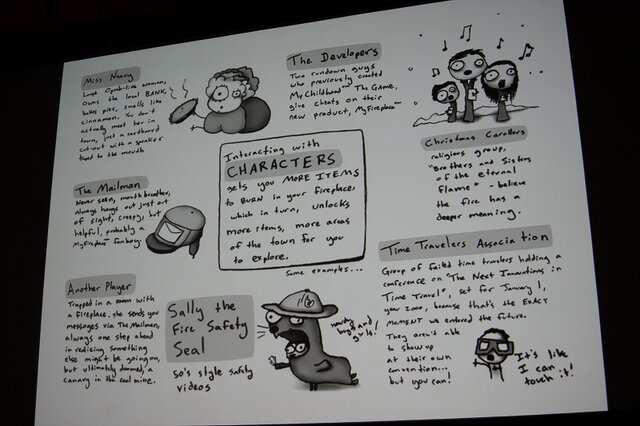 Miss Nancy
Large Oprah-like woman,
Owns the local BANK,
bakes pies, smells like
cinnamon. You don't
actually meet her in
town, just a cardboard
cut-out with a speaker
taped to the mouth
The Developers
Two rundown guys
who previously created
My Childhood The Game,
give cheats on their
new product, MyFireplace
Christmas Carollers
religious group,
"Brothers and Sisters
of the eternal
Flame" - believe
the fire has a
deeper meaning.
Interacting with
CHARACTERS
gets you MORE ITEMS
to BURN in your fireplace,
which in turn, unlocks
more items, more areas
of the town for you
to explore.
Some examples...
The Mailman
Never seen, mouth breather,
always hangs out just out
of sight, creepy, but
helpful, probably a
MyFireplace fanboy.
Another Player
Trapped in a room with
a fireplace, she sends you
messages via The Mailman,
always one step ahead
in realizing something
else might be going on,
but ultimately doomed, a
canary in the coal mine.
Sally the
Fire Safety
Seal
50's style safety
videos
Time Travelers Association
Group of failed time travelers holding a
conference on "The Next Innovations in
Time Travel", set for January 1,
year 2000, because that's the EXACT
MOMENT we entered the future.
They aren't able
to show up
at their own
convention...
but you can!
It's like
I can
touch it!